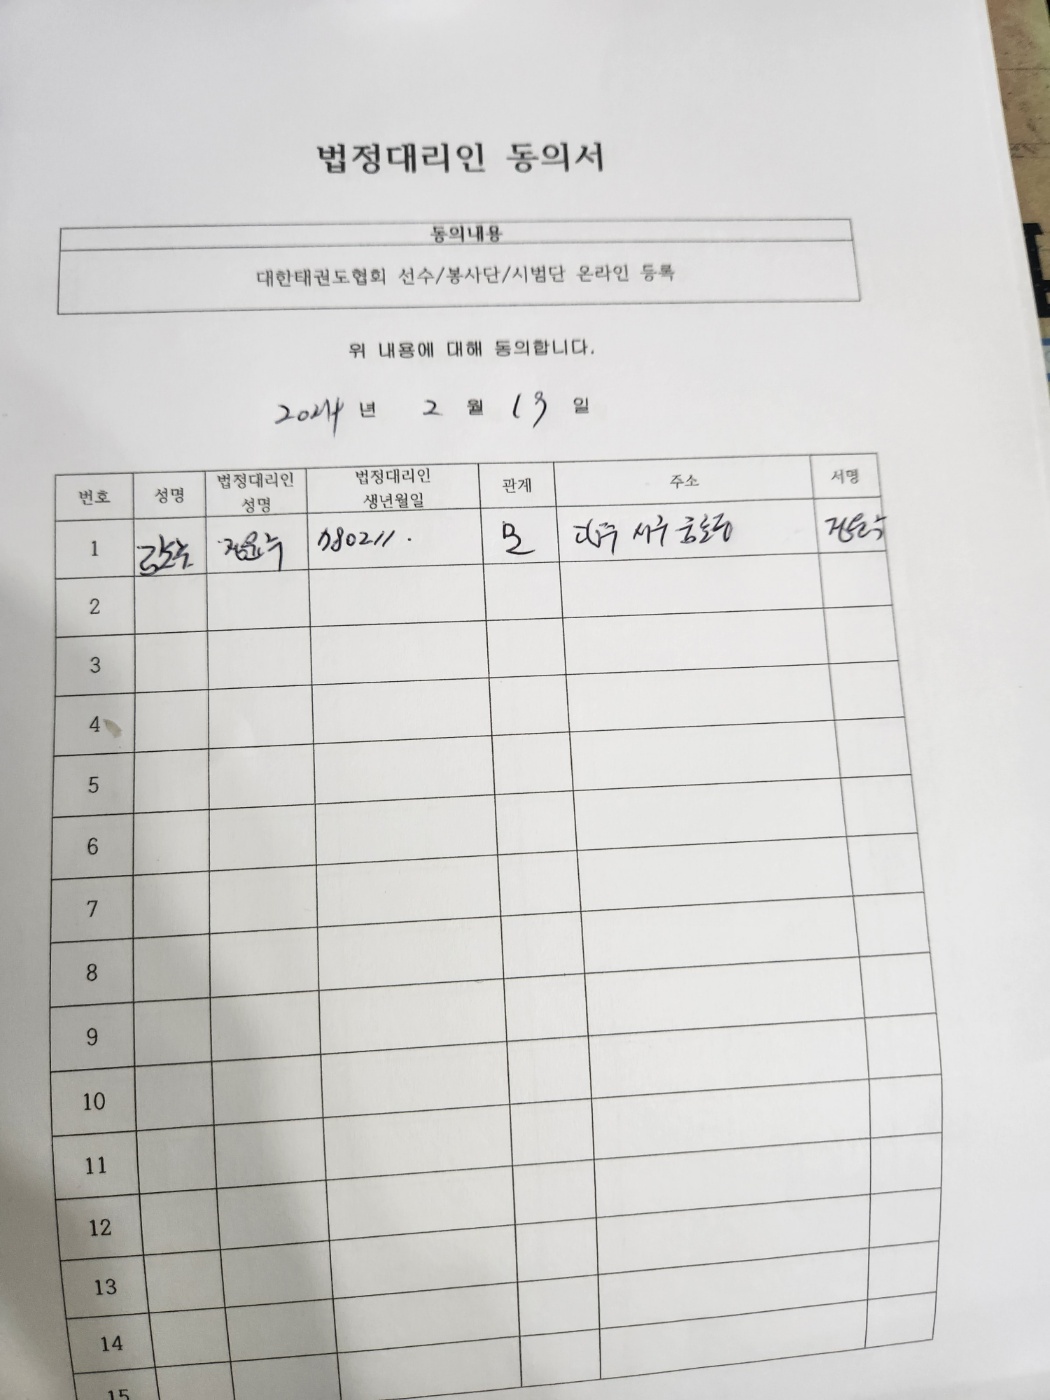 법정대리인 동의서
동의내용
대한태권도협회 선수/봉사단/시범단 온라인 등록
위 내용에 대해 동의합니다.
2024 년 2 월 13 일
번호 성명 법정대리인 성명 법정대리인 생년월일 관계 주소 서명
1 780211. 모 서구
2
3
4
5
6
7
8
9
10
11
12
13
14
15